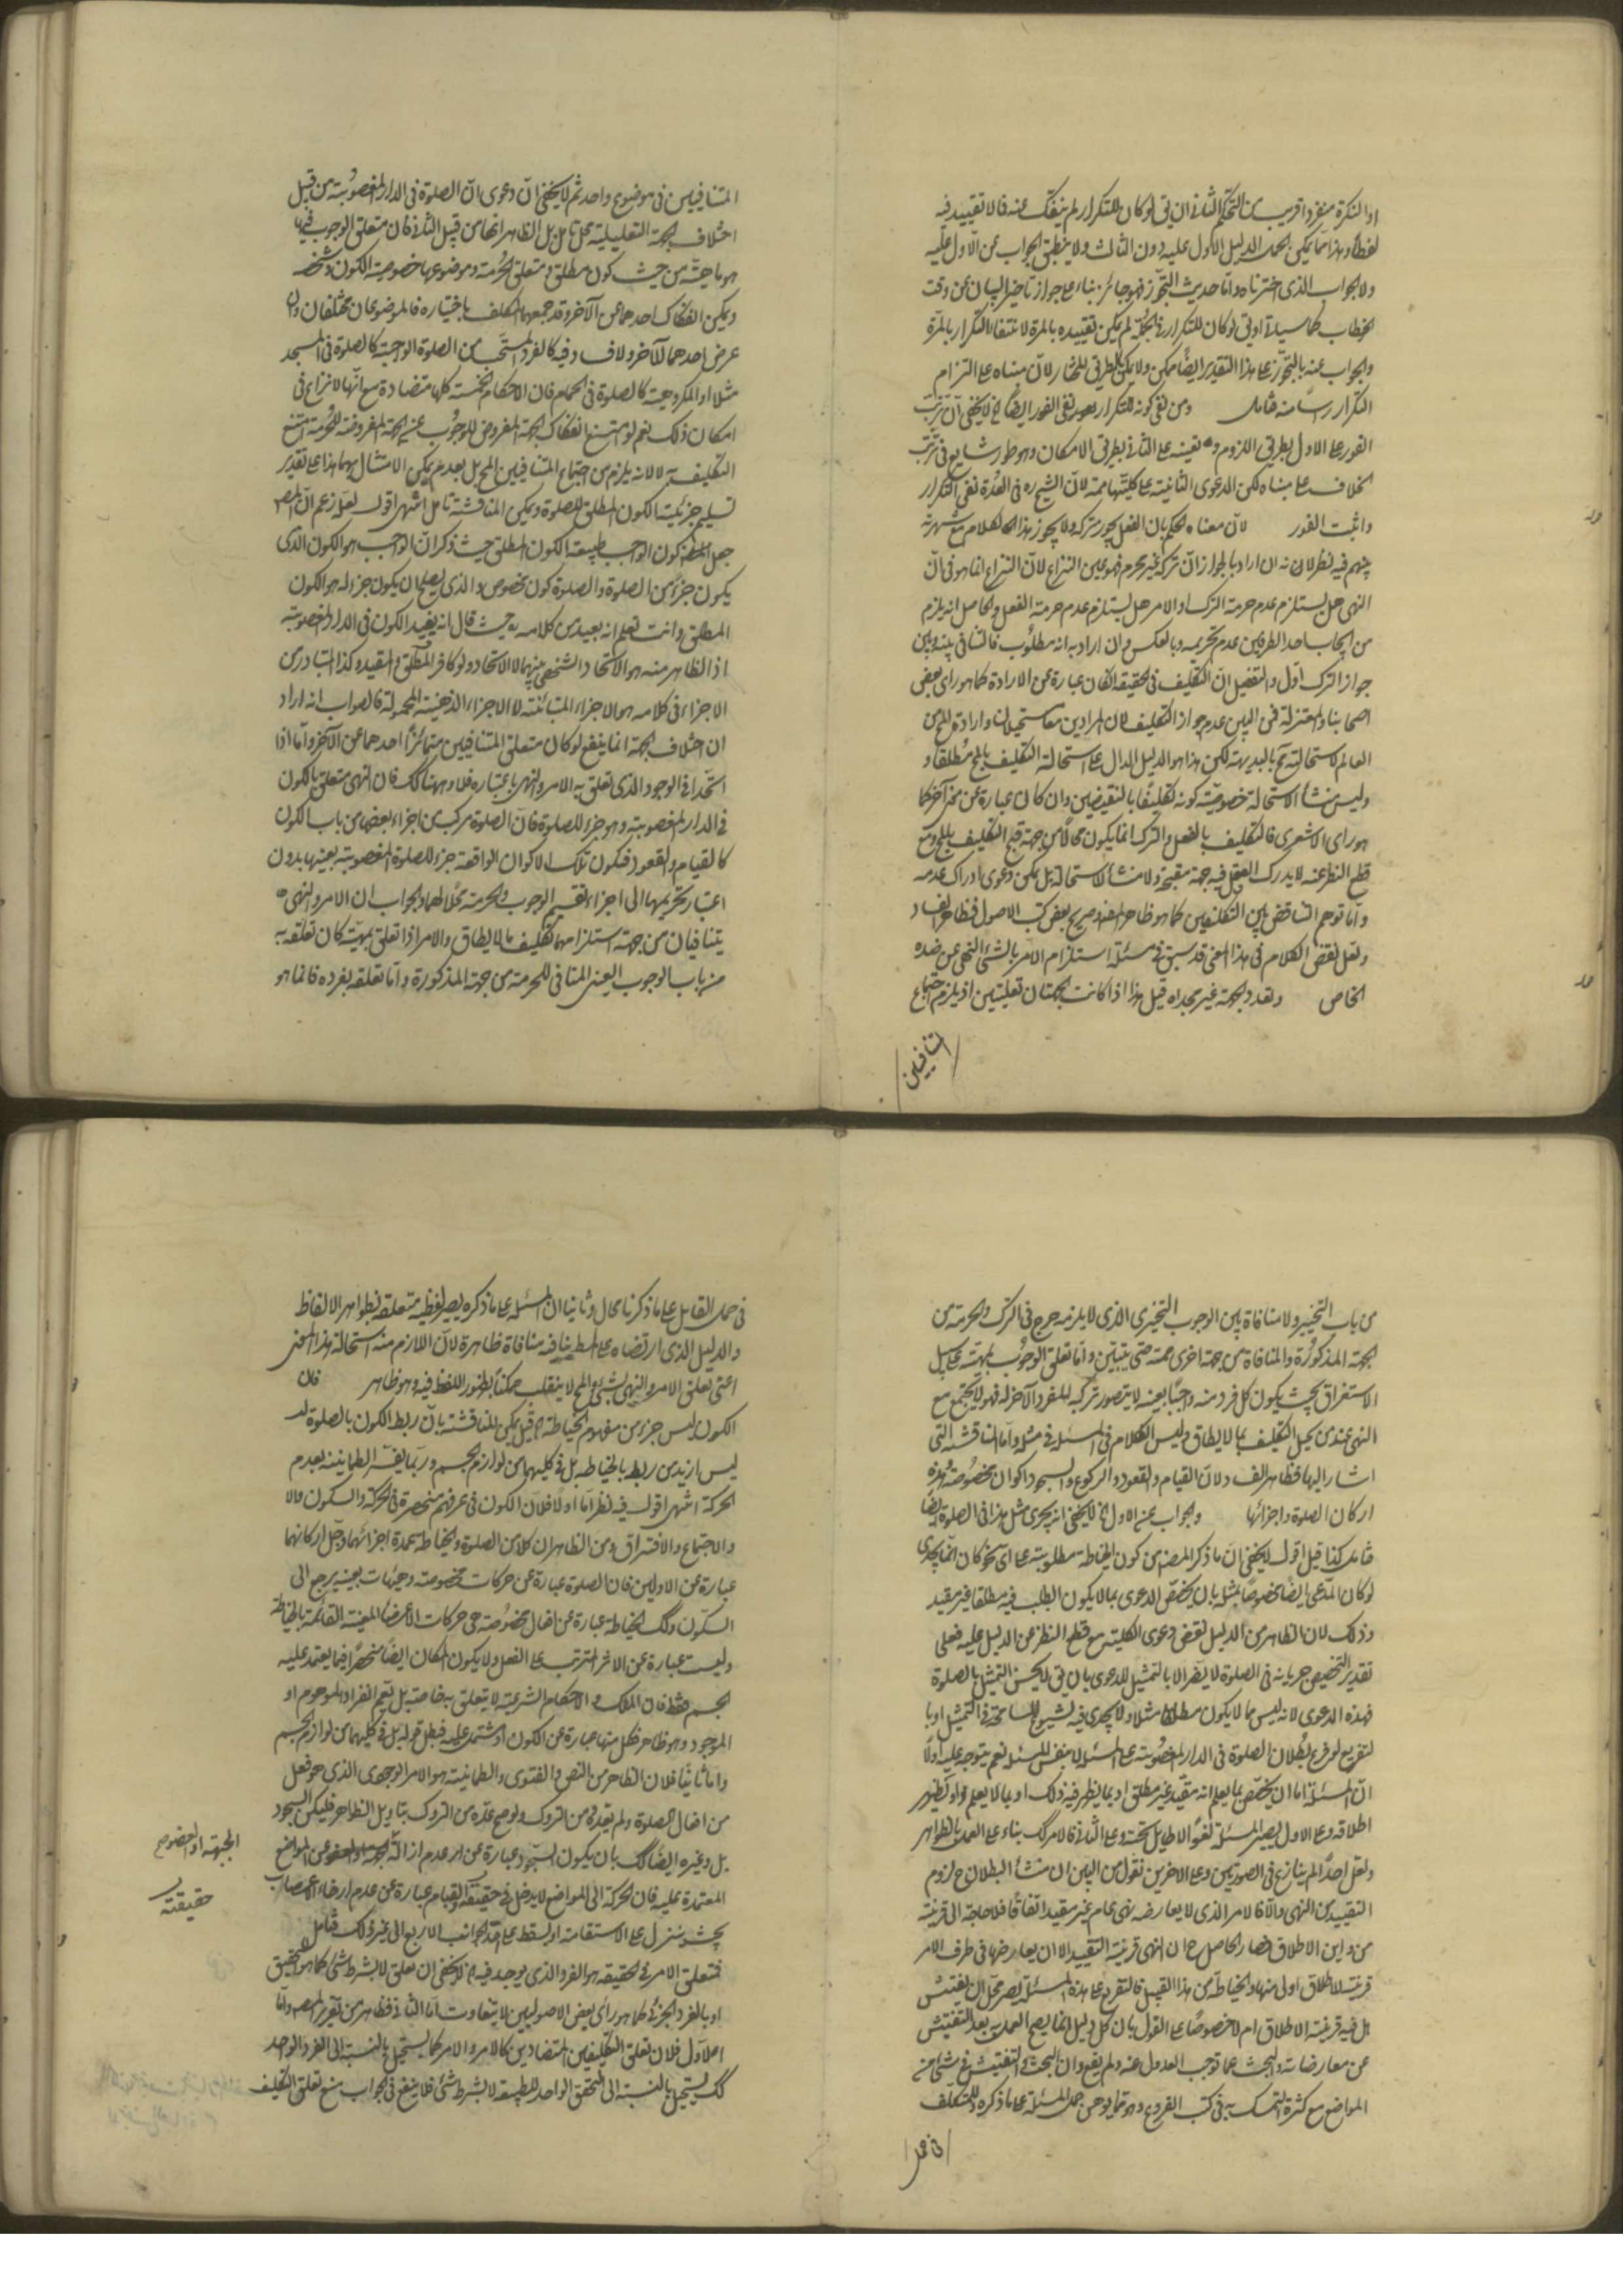 او النكرة منفردا قريب من التحكم الثاني ان يق لو كان للتكرار لم ينفك عنه فالا تقييد فيه
لفظا وهذا مما يمكن حمل الدليل الاول عليه دون الثالث ولا ينطبق الجواب عن الاول عليه
ولا الجواب الذي اخترناه واما حديث التجوز فهو جائز بناء على جواز تاخير البيان عن وقت
الخطاب كما سياتي او يق لو كان للتكرار في الجملة لم يكن تقييده بالمرة لانتفاء التكرار بالمرة
والجواب عنه بالتجوز على هذا التقدير ايضا ممكن ولا يمكن بطريق المختار لان مبناه على التزام
التكرار راسا منه فتامل ومن نفى كونه للتكرار نفى الفور ايضا لا يخفى ان ترتب
الفور على الاول بطريق اللزوم و نفيه على الثاني بطريق الامكان وهو طور شايع في ترتب
الخلاف على مبناه لكن الدعوى الثانية على كليتها ممنوعة لان الشيخ ره في العدة نفى التكرار
واثبت الفور لان معناه الحكم بان الفعل يجوز تركه ولا يجوز هذا الكلام مع شهرته
بينهم فيه نظر لانه ان اراد بالجواز ان تركه غير محرم فهو عين النزاع لان النزاع انما هو في ان
النهي هل يستلزم عدم حرمة الترك او الامر هل يستلزم عدم حرمة الفعل والحاصل انه يلزم
من ايجاب احد الطرفين عدم تحريمه وبالعكس وان اراد به انه مطلوب فالتنافي بينه وبين
جواز الترك اول والتفصيل ان التكليف في الحقيقة ان كان عبارة عن الارادة كما هو راى بعض
اصحابنا والمعتزلة فمن البين عدم جواز التكليف لان المرادين معا مستحيلان وارادة المح من
العالم لاستحالته مح بالبديهة لكن هذا هو الدليل الدال على استحالة التكليف بالمح مطلقا و
وليس منشا الاستحالة خصوصية كونه تكليفا بالنقيضين وان كان عبارة عن معنى آخر كما
هو راى الاشعرى فالتكليف بالفعل والترك انما يكون محالا من جهة قبح التكليف بالمح ومع
قطع النظر عنه لا يدرك العقل فيه جهة مقبحة ولا منشا لاستحالة بل يمكن دعوى ادراك عدمه
واما توهم التناقض بين التكليفين كما هو ظاهر المفيد وصريح بعض كتب الاصول فظاهر الفساد
ولعل نقض الكلام في هذا المعنى قد سبق في مسئلة استلزام الامر بالشئ النهي عن ضده
الخاص وتعدد الجهة غير مجد اه قيل هذا اذا كانت الجهتان تعليليتين اذ يلزم اجتماع
المتنافيين
المتنافيين في موضوع واحد ثم لا يخفى ان دعوى ان الصلوة في الدار المغصوبة من قبل
اختلاف الجهة التعليلية محل تامل بل الظاهر انها من قبيل الثاني فان متعلق الوجوب فيها
هو ماهية من حيث كون مطلق و متعلق الحرمة وموضوعها خصوصية الكون وشخصه
ويمكن انفكاك احدهما عن الآخر وقد جمعهما المكلف باختياره فالموضوعان مختلفان وان
عرض احدهما للآخر ولا فساد فيه كالفرد المستحب من الصلوة الواجبة كالصلوة في المسجد
مثلا او المكروهة كالصلوة في الحمام فان الاحكام الخمسة كلها متضادة مع انها لا نزاع في
امكان ذلك نعم لو امتنع انفكاك الجهة المفروض للوجوب عن الجهة المفروضة للحرمة امتنع
التكليف به لا لانه يلزم من اجتماع المتنافيين المح بل بعدم تمكن الامتثال بهما هذا على تقدير
تسليم جزئية الكون المطلق للصلوة ويمكن المناقشة تامل انتهى اقول لعله زعم ان المصه
جعل كون الواجب طبيعة الكون المطلق حيث ذكر ان الواجب هو الكون الذى
يكون جزء من الصلوة والصلوة كون مخصوص والذى يصلح ان يكون جزء له هو الكون
المطلق وانت تعلم انه بعيد من كلامه ره حيث قال انه يفيد الكون في الدار المغصوبة
اذ الظاهر منه هو الاتحاد الشخصى بينهما لا الاتحاد ولو كافر المطلق في المقيد وكذا المتبادر من
الاجزاء في كلامه هو الاجزاء المتبائنة لا الاجزاء الذهنية المحمولة فالصواب انه اراد
ان اختلاف الجهة انما ينفع لو كان متعلق المتنافيين متمايزا احدهما عن الآخر واما اذا
اتحدا في الوجود الذى تعلق به الامر والنهى باعتباره فلا وههنا كك فان النهى متعلق بالكون
في الدار المغصوبة وهو جزء للصلوة فان الصلوة مركب من اجزاء بعضها من باب الكون
كالقيام والقعود فتكون تلك الاكوان الواقعة جزء للصلوة المغصوبة بعينها بدون
اعتبار تحريمها الى اجزاء تقسيم الوجوب والحرمة محلا لهما والجواب ان الامر والنهى
يتنافيان من جهة استلزامهما تكليف ما لا يطاق والامر اذا تعلق بمهية كان تعلقه به
من باب الوجوب العينى المنافى للحرمة من جهة المذكورة واما تعلقه بفرده فانما هو
من باب التخيير ولا منافاة بين الوجوب التخيرى الذى لا يلزمه حرج في الترك والحرمة من
الجهة المذكورة والمنافاة من جهة اخرى ممنوعة حتى يتبين واما تعلق الوجوب بمهية على سبيل
الاستغراق بحيث يكون كل فرد منه واجبا بعينه لا يتصور تركه للفرد الآخر له فهو لا يجتمع مع
النهى عند من يحيل التكليف بما لا يطاق وليس الكلام في المسئلة في مثله واما المناقشة التى
اشار اليها فظاهر الفساد لان القيام والقعود والركوع والسجود اكوان مخصوصة وهذه
اركان الصلوة واجزائها والجواب عن الاول لا يخفى انه يجرى مثل هذا في الصلوة ايضا
فتامل كذا قيل اقول لا يخفى ان ما ذكره المصه من كون الخياطة مطلوبة على اى نحو كان انما يجدى
لو كان المدعى ايضا مخصوصا بمثله بان يخصص الدعوى بما لا يكون الطلب فيه مطلقا غير مقيد
وذلك لان الظاهر من الدليل نقض دعوى الكلية مع قطع النظر عن الدليل عليه فعلى
تقدير التخصيص جريانه في الصلوة لا يضر الا بالتمثيل للدعوى بان يق لا يحسن التمثيل بالصلوة
فهذه الدعوى لانه ليس مما لا يكون مطلقا مثلا ولا يجدى فيه لشيوع المسامحة في التمثيل او با
لتفريع لو فرع بطلان الصلوة في الدار المغصوبة على المسئلة لا بنفس المسئلة نعم يتوجه عليه اولا
ان المسئلة اما ان يخصص بما يعلم انه مقيد غير مطلق او بما يظهر فيه ذلك او بما لا يعلم ولو يظهر
اطلاقه وعلى الاول يصير المسئلة لغوا لا طائل تحته وعلى الثاني فالامر كك بناء على العمل بالظواهر
ولعل احدا لم ينازع في الصورتين وعلى الاخرين نقول من البين ان منشا البطلان ح لزوم
التقييد من النهى والا فالامر الذى لا يعارضه نهى عام غير مقيد اتفاقا فلا حاجة الى قرينة
من داين الاطلاق فصار الحاصل ح ان النهى قرينة التقييد الا ان يعارضها في طرف الامر
قرينة الاطلاق اولى منها والخياطة من هذا القبيل فالتفرع على هذه المسئلة يصير محل ان يفتش
هل فيه قرينة الاطلاق ام لا خصوصا على القول بان كل دليل انما يصح العمل به بعد التفتيش
عن معارضاته والبحث عما توجب العدول عنه ولم يقع وان البحث والتفتيش في شئ من
المواضع مع كثرة التمسك به في كتب الفروع وهو مما يوهن حمل المسئلة على ما ذكره للتكلف
في حمل
في حمل القائل على ما ذكرنا محال وثانيا ان المسئلة على ما ذكره يصير لفظية متعلقة بظواهر الالفاظ
والدليل الذى ارتضاه على المط ينافيه منافاة ظاهرة لان اللازم منه استحالة هذا المعنى
اعنى تعلق الامر والنهى بشئ والمح لا ينقلب ممكنا بظهور اللفظ فيه وهو ظاهر فان
الكون ليس جزء من مفهوم الخياطة اه قيل يمكن المناقشة بان ربط الكون بالصلوة
ليس ازيد من ربط بالخياطة بل في كليهما من لوازم الجسم وربما يفسر الطمانينة بعدم
الحركة انتهى اقول فيه نظر اما اولا فلان الكون في عرفهم منحصرة في الحركة والسكون
والاجتماع والافتراق ومن الظاهر ان كلا من الصلوة والخياطة عمدة اجزائهما وجل اركانهما
عبارة عن الاولين فان الصلوة عبارة عن حركات مخصوصة وهيئات بعينه يرجع الى
السكون وكك الخياطة عبارة عن افعال مخصوصة هى حركات الاعضاء المعينة القائمة بالخياط
وليست عبارة عن الاثر المترتب على الفعل ولا يكون المكان ايضا منحصرا فيما يعتمد عليه
الجسم فقط فان الملك و الاحكام الشرعية لا يتعلق به خاصة بل تعم الفراد الموهوم او
الموجود وهو ظاهر فكل منها عبارة عن الكون او مشتمل عليه فبطل قوله بل في كليهما من لوازم الجسم
واما ثانيا فلان الظاهر من النص والفتوى والطمانينة هو الامر الوجودى الذى هو فعل
من افعال الصلوة ولم يعد في من التروك ولو صح عده من التروك بتاويل الظاهر فليكن السجود
بل وغيره ايضا كك بان يكون السجود عبارة عن عدم ازالة عن المواضع
المعتمدة عليه فان الحركة الى المواضع لا يدخل في حقيقته والقيام عبارة عن عدم ارخاء الاعصاب
بحيث ينزل على الاستقامة او يسقط على احد الجوانب الاربع الى غير ذلك فتامل
فتعلق الامر في الحقيقة هو الفرد الذى يوجد فيه اه لا يخفى ان تعلق لا بشرط شئ كما هو التحقيق
او بالفرد الجزئ كما هو راى بعض الاصوليين لا يتفاوت اما الثاني فظاهر من تقرير المصه واما
الاول فلان تعلق التكليفين المتضادين كالامر والامر كما يستحيل بالنسبة الى الفرد الواحد
كك يستحيل بالنسبة الى التحقق الواحد للطبيعة لا بشرط شئ فلا ينفع في الجواب منع تعلق التكليف
الجبهة او لخضوع
حقيقته